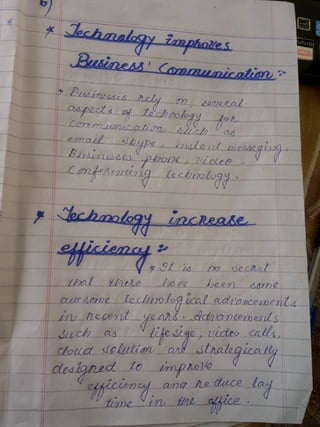 6)
* Technology improves
Business' Communication :-
* Businesses rely on several
aspects of technology for
communication such as
email skype, instant messeging,
Businesses phone, video
Conferencing technology.
* Technology increase
efficiency :-
* It is no secret
that there have been some
awesome technological advancements
in recent years. Advancements
such as life size, video calls,
cloud solution are strategically
designed to improve
efficiency and reduce lay
time in the office.